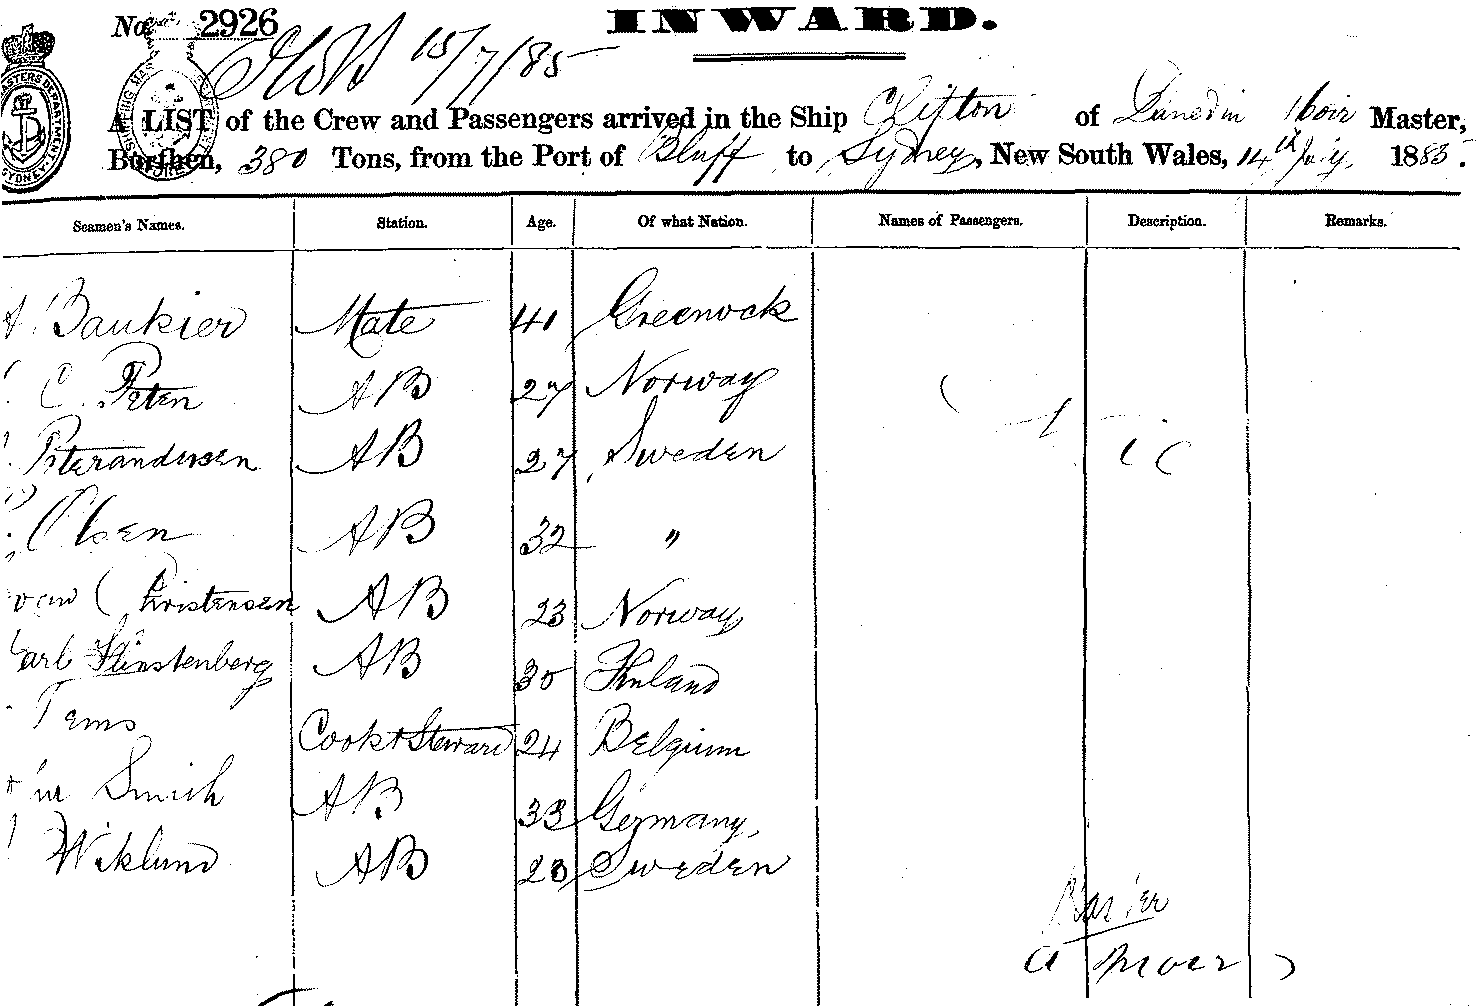 No. 2926 INWARD.
15/7/85
A LIST of the Crew and Passengers arrived in the Ship Clifton of Dunedin Moir Master,
Burthen, 380 Tons, from the Port of Bluff to Sydney, New South Wales, 14th July, 1885.
Seamen's Names. Station. Age. Of what Nation. Names of Passengers. Description. Remarks.
Baukier Mate 41 Greenock
C. Peten AB 27 Norway
Peterandersen AB 27 Sweden
Olsen AB 32 "
Christensen AB 23 Norway
Carl Flinstenberg AB 30 Finland
Tems Cook & Steward 24 Belgium
Smith AB 33 Germany,
Wiklund AB 23 Sweden
A Moir